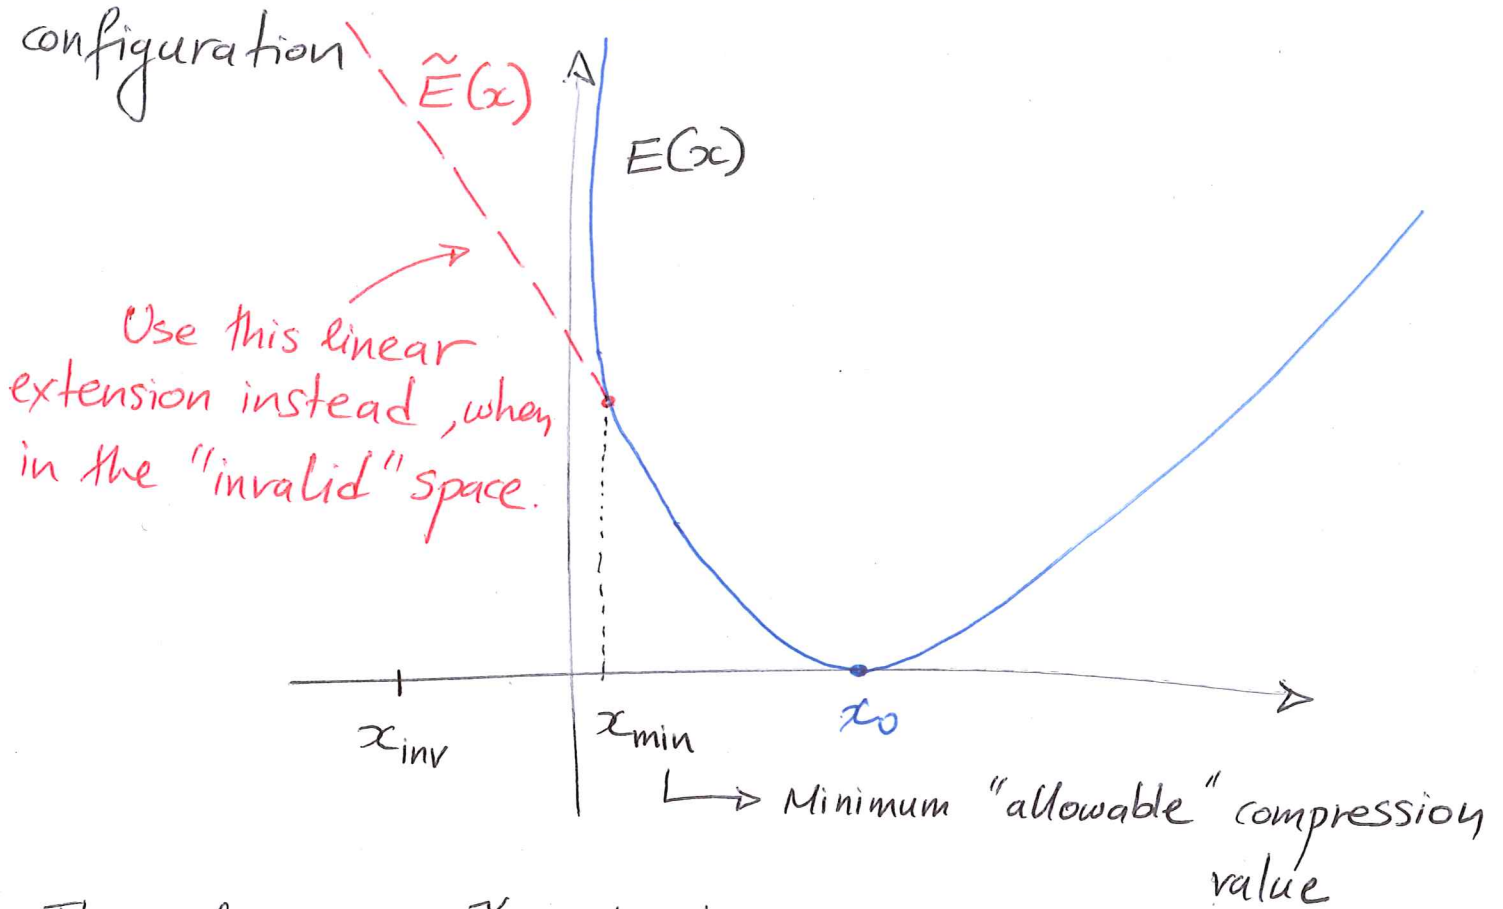 configuration
Ẽ(x)
E(x)
Use this linear
extension instead, when
in the "invalid" space.
x_inv
x_min
x_0
Minimum "allowable" compression
value